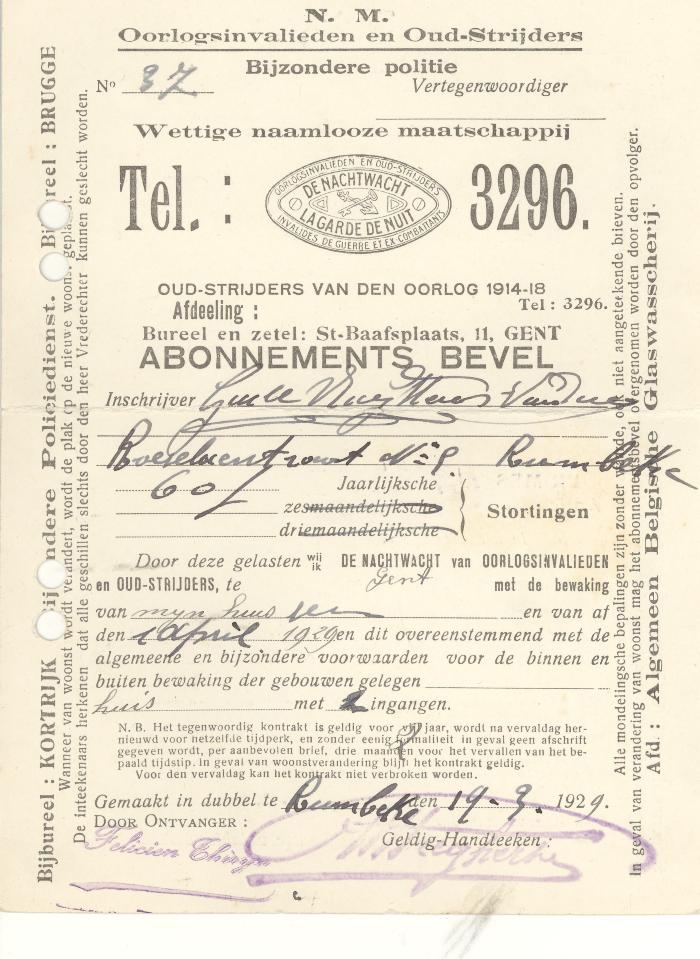 N. M.
Oorlogsinvalieden en Oud-Strijders
Bijzondere politie
Nº 37 Vertegenwoordiger
Wettige naamlooze maatschappij
Tel. : 3296.
OORLOGSINVALIEDEN EN OUD-STRIJDERS
DE NACHTWACHT
LA GARDE DE NUIT
INVALIDES DE GUERRE ET EX COMBATTANTS
OUD-STRIJDERS VAN DEN OORLOG 1914-18
Afdeeling : Tel : 3296.
Bureel en zetel: St-Baafsplaats, 11, GENT
ABONNEMENTS BEVEL
Inschrijver
Nº 9. Rumbeke
60 Jaarlijksche
zesmaandelijksche Stortingen
driemaandelijksche
Door deze gelasten wij ik DE NACHTWACHT van OORLOGSINVALIEDEN
en OUD-STRIJDERS, te Gent met de bewaking
van mijn huis en van af
den 1 April 1929 en dit overeenstemmend met de
algemeene en bijzondere voorwaarden voor de binnen en
buiten bewaking der gebouwen gelegen
huis met 2 ingangen.
N. B. Het tegenwoordig kontrakt is geldig voor jaar, wordt na vervaldag her-
nieuwd voor hetzelfde tijdperk, en zonder eenig formaliteit in geval geen afschrift
gegeven wordt, per aanbevolen brief, drie maanden voor het vervallen van het be-
paald tijdstip. In geval van woonstverandering blijft het kontrakt geldig.
Voor den vervaldag kan het kontrakt niet verbroken worden.
Gemaakt in dubbel te Rumbeke den 19-3. 1929.
DOOR ONTVANGER : Geldig-Handteeken :
Felicien
Bijbureel : KORTRIJK Bijzondere Policiedienst. Bijbureel : BRUGGE
Wanneer van woonst wordt verandert, wordt de plak op de nieuwe woonst geplaatst.
De inteekenaars herkenen dat alle geschillen slechts door den heer Vrederechter kunnen geslecht worden.
Alle mondelingsche bepalingen zijn zonder waarde, ook niet aangeteekende brieven.
In geval van verandering van woonst mag het abonnementsbevel overgenomen worden door den opvolger.
Afd. : Algemeen Belgische Glaswasscherij.